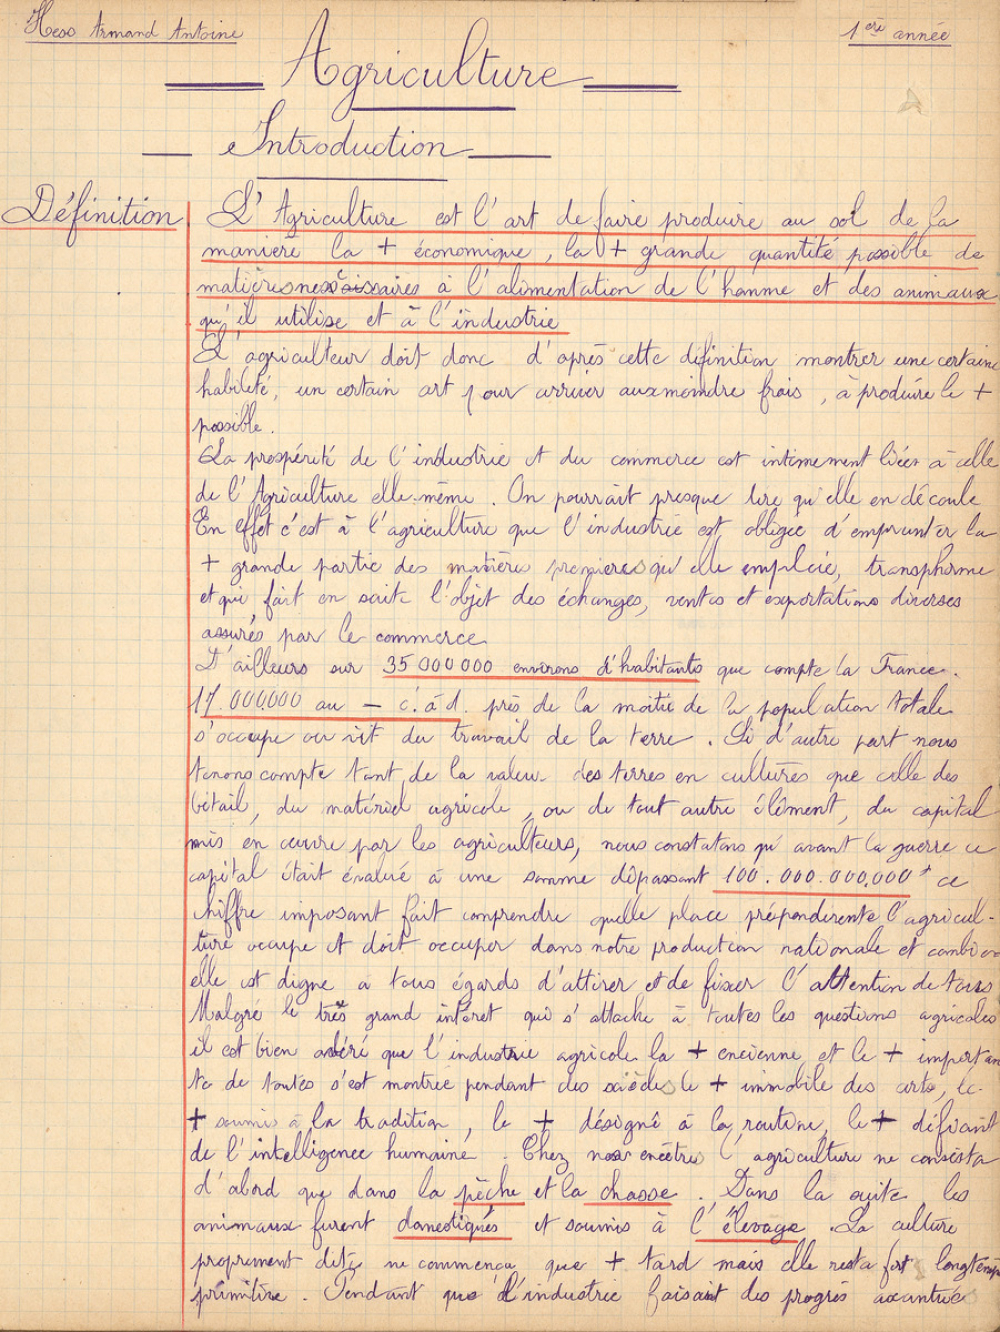 Hess Armand Antoine
1ère année
Agriculture
Introduction
Définition
L'Agriculture est l'art de faire produire au sol de la
manière la + économique, la + grande quantité possible de
matières nessécaires à l'alimentation de l'homme et des animaux
qu'il utilise et à l'industrie
L'agriculteur doit donc d'après cette définition montrer une certaine
habileté, un certain art pour arriver aux moindre frais, à produire le +
possible.
La prospérité de l'industrie et du commerce est intimement liées à celle
de l'Agriculture elle-même. On pourrait presque dire qu'elle en découle
En effet c'est à l'agriculture que l'industrie est obligée d'emprunter la
+ grande partie des matières premières qu'elle emploie, transphorme
et qui fait en suite l'objet des échanges, ventes et exportations diverses
assurés par le commerce
D'ailleurs sur 35 000 000 environs d'habitants que compte la France.
17.000.000 au — c.à.d. près de la moitié de la population totale
s'occupe ou vit du travail de la terre. Si d'autre part nous
tenons compte tant de la valeur des terres en cultures que celle des
bétail, du matériel agricole, ou de tout autre élément, du capital
mis en œuvre par les agriculteurs, nous constatons qu'avant la guerre ce
capital était évalué à une somme dépassant 100.000.000.000 ce
chiffre imposant fait comprendre quelle place prépondérente l'agricul-
ture occupe et doit occuper dans notre production nationale et combien
elle est digne à tous égards d'attirer et de fixer l'attention de tous
Malgré le très grand intéret qui s'attache à toutes les questions agricoles
il est bien avéré que l'industrie agricole la + encienne et le + importan
te de toutes s'est montrée pendant des siècles le + immobile des arts, le
+ soumis à la tradition, le + désigné à la routine, le + défiant
de l'intelligence humaine. Chez nos encêtres l'agriculture ne consista
d'abord que dans la pêche et la chasse. Dans la suite les
animaux furent domestiqués et soumis à l'élevage. La culture
proprement dite ne commença que + tard mais elle resta fort longtemps
primitive. Pendant que l'industrie faisait des progrès